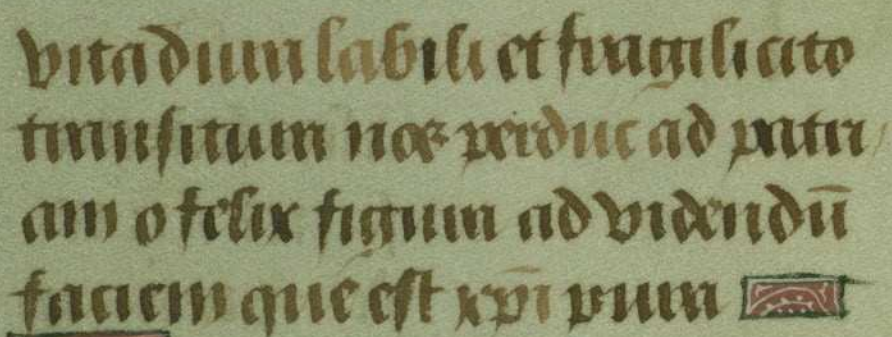 vita dura labili et fragili cito
transitura nos perduc ad patri
am o felix figura ad videndū
faciem que est xp̄i pura